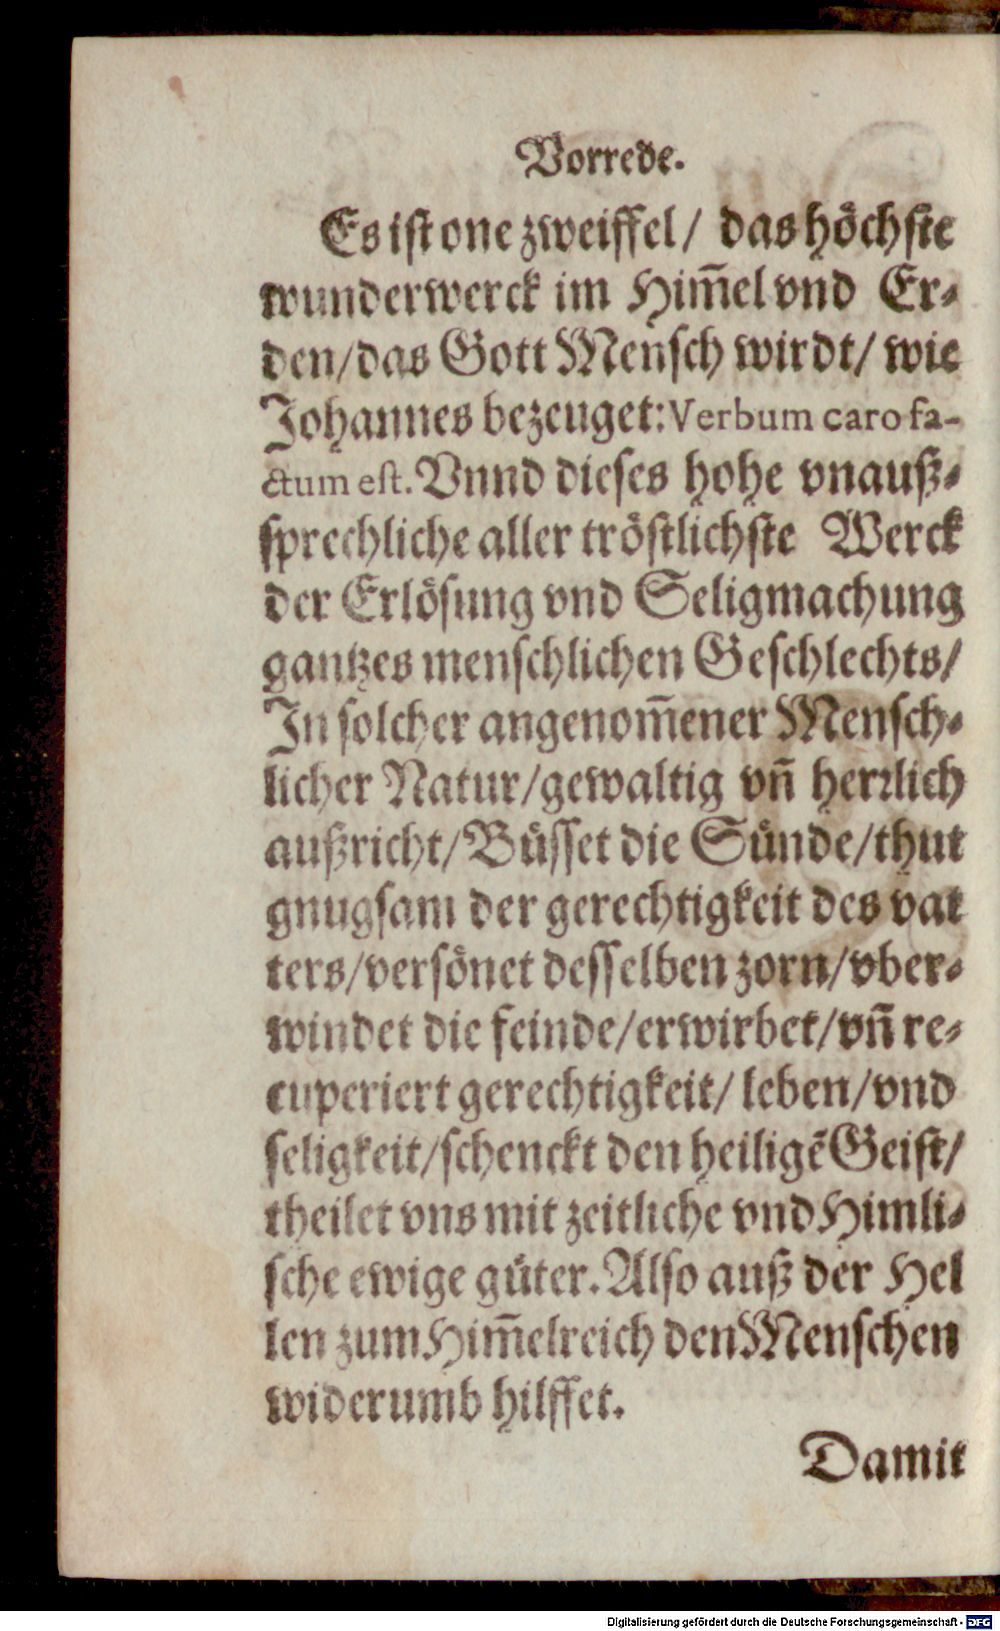 Vorrede.
Es ist one zweiffel/ das höchste
wunderwerck im Him̃el vnd Er-
den/das Gott Mensch wirdt/ wie
Johannes bezeuget: Verbum caro fa-
ctum est. Vnnd dieses hohe vnauß-
sprechliche aller tröstlichste Werck
der Erlösung vnd Seligmachung
gantzes menschlichen Geschlechts/
In solcher angenom̃ener Mensch-
licher Natur/gewaltig vñ herꝛlich
außricht/Büsset die Sünde/thut
gnugsam der gerechtigkeit des vat
ters/versönet desselben zorn/vber-
windet die feinde/erwirbet/vñ re-
cuperiert gerechtigkeit/ leben/vnd
seligkeit/schenckt den heiligẽ Geist/
theilet vns mit zeitliche vnd Himli-
sche ewige güter. Also auß der Hel
len zum Him̃elreich den Menschen
widerumb hilffet.
Damit
Digitalisierung gefördert durch die Deutsche Forschungsgemeinschaft - DFG